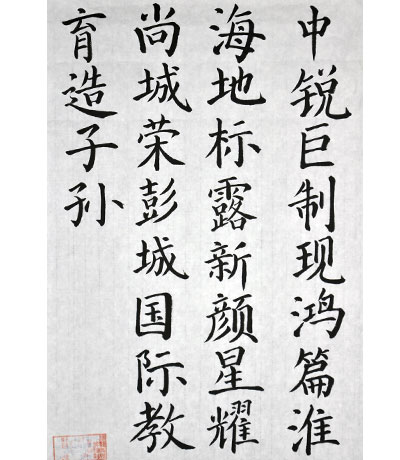 中锐巨制现鸿篇淮
海地标露新颜星耀
尚城荣彭城国际教
育造子孙